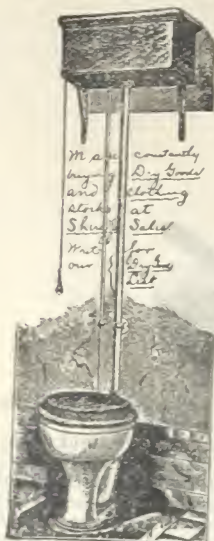 We are constantly
buying Dry Goods
and Clothing
stocks at
Sheriffs Sales
Write for
our Dry Goods
List